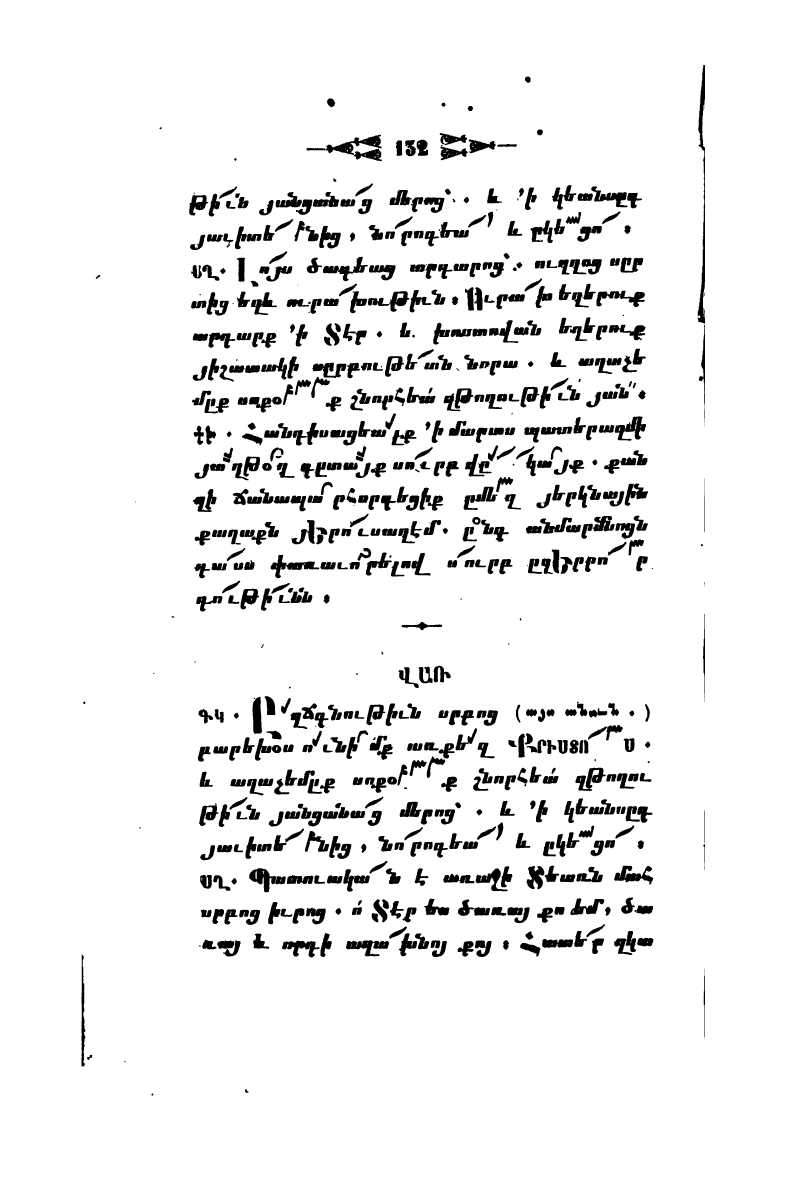 132
թի՜ւն յանցանա՜ց մերոց՝. և ՚ի կեանսըգ
յաւիտե՜նից, նո՜րոգեա՜ և ըկե՜ցո՜։
ԱՂ. Լո՜յս ծագեաց արդարոց՝. ուղղոց սըր
տից եղև ուրա՜խութիւն։ Ուրա՜խ եղերուք
արդարք ՚ի Տէր. և խոստովան եղերուք
յիշատակի սըրբութե՜ան նորա. և աղաչե
մըք սոքօ՜ք շնորհեա՛ զթողութի՜ւն յան՝՝։
ԴԿ. Հանդիսացեա՜լք ՚ի մարտս պատերազմի
յա՜ղթօ՜ղ գըտա՜յք սո՜ւրբ վը՜կա՜յք. քան
զի ճանապա՜րհորդեցիք ըմե՜ղ յերկնային
քաղաքն յԵրո՜ւսաղէմ. ը՜նդ անմարմնոցն
դա՜սս փառաւո՜րելով ս՜ուրբ ըզԵրրո՜ր
դո՜ւթի՜ւնն։
ՎԱՌ
ԳԿ. Բ՜զճգնութիւն սրբոց (այս անուն.)
բարեխօս ո՜ւնի՜մք առքե՜զ ՔՐԻՍՏՈ՜Ս.
և աղաչեմըք սոքօ՜ք շնորհեա՛ զթողու
թի՜ւն յանցանա՜ց մերոց՝. և ՚ի կեանսըգ
յաւիտե՜նից, նո՜րոգեա՜ և ըկե՜ցո՜։
ԱՂ. Պատուակա՜ն է առաջի Տեառն մահ
սրբոց իւրոց. ո՛ Տէր ես ծառայ քո եմ, ծա
ռայ և որդի աղա՜խնոյ քոյ։ Հատե՜ր զկա